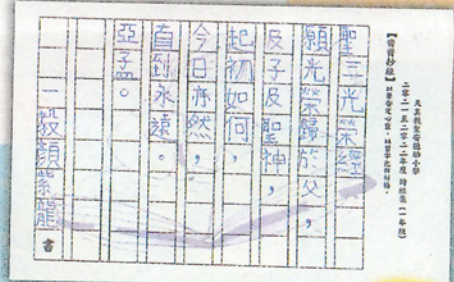 天主教聖安德肋小學
二零二一至二零二二年度 詩經集(一年級)
【齋寶抄經】
聖三光榮經
願光榮歸於父,
及子及聖神,
起初如何,
今日亦然,
直到永遠。
亞孟。
一毅顏紫龍 書